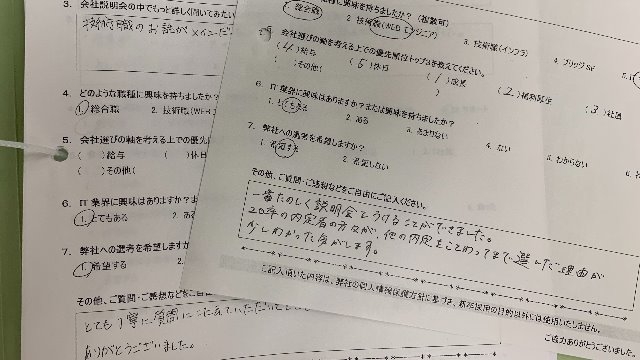 3. 会社説明会の中でもっと詳しく聞いてみたい
技術職のお話がメインだ
4. どのような職種に興味を持ちましたか?
1. 総合職 2. 技術職(WEB
5. 会社選びの軸を考える上での優先
( )給与 ( )休日
( )その他(
6. IT 業界に興味はありますか?ま
1. とてもある 2. ある
7. 弊社への選考を希望しますか
1. 希望する 2.
その他、ご質問・ご感想などをご自
とても丁寧に質問に
ありがとうございました。
に興味を持ちましたか?(複数可)
1. 総合職 2. 技術職(WEB エンジニア) 3. 技術職(インフラ) 4. ブリッジ SE
会社選びの軸を考える上での優先順位トップ5を教えてください。
(4)給与 (5)休日 (1)成長 (2) (3)社風
( )その他( )
6. IT 業界に興味はありますか?または興味を持ちましたか?
1. とてもある 2. ある 3. あまりない 4. ない 5. わからない
7. 弊社への選考を希望しますか?
1. 希望する 2. 希望しない
その他、ご質問・ご感想などをご自由にご記入ください。
一番たのしく説明会をうけることができました。
20卒の内定者の方々が、他の内定をことわってまで選んだ理由が
少しわかった気がします。
ご記入頂いた内容は、弊社の個人情報保護方針に基づき、新卒採用の目的以外には使用いたしません。
ご協力ありがとうございました。